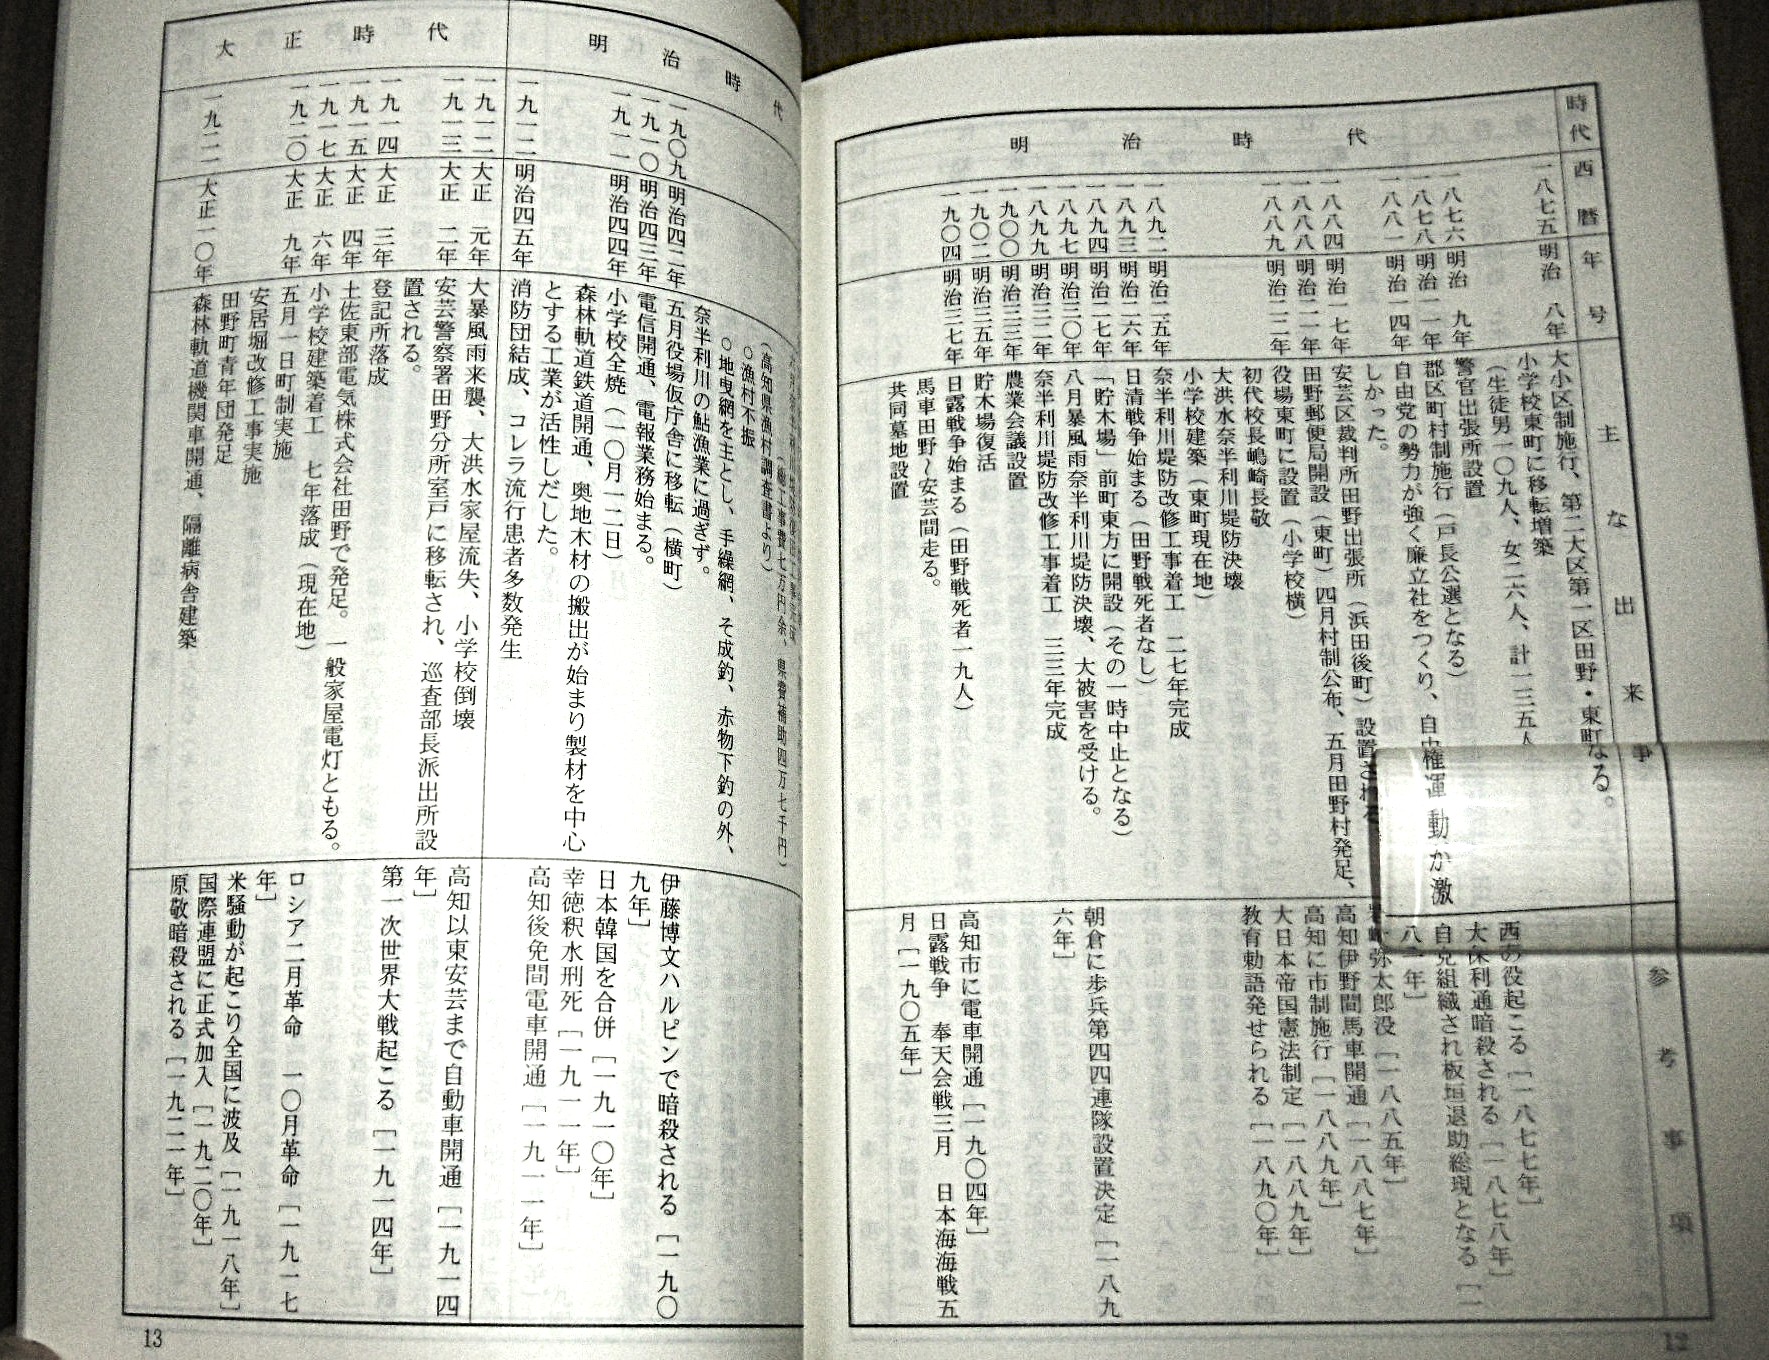 時代
西暦
年号
主な出来事
参考事項
明治時代
一八七五 明治 八年 大小区制施行、第二大区第一区田野・東町なる。
小学校東町に移転増築
(生徒男一〇九人、女二六人、計一三五人
一八七六 明治 九年 警官出張所設置
一八七八 明治一一年 郡区町村制施行(戸長公選となる)
一八八一 明治一四年 自由党の勢力が強く廉立社をつくり、自由権運動が激
しかった。
一八八四 明治一七年 安芸区裁判所田野出張所(浜田後町)設置される。
一八八八 明治二一年 田野郵便局開設(東町)四月村制公布、五月田野村発足、
一八八九 明治二二年 役場東町に設置(小学校横)
初代校長嶋崎長敬
大洪水奈半利川堤防決壊
小学校建築(東町現在地)
一八九二 明治二五年 奈半利川堤防改修工事着工 二七年完成
一八九三 明治二六年 日清戦争始まる(田野戦死者なし)
一八九四 明治二七年 「貯木場」前町東方に開設(その一時中止となる)
一八九七 明治三〇年 八月暴風雨奈半利川堤防決壊、大被害を受ける。
一八九九 明治三二年 奈半利川堤防改修工事着工 三三年完成
一九〇〇 明治三三年 農業会議設置
一九〇二 明治三五年 貯木場復活
一九〇四 明治三七年 日露戦争始まる(田野戦死者一九人)
馬車田野〜安芸間走る。
共同墓地設置
西南の役起こる[一八七七年]
大保利通暗殺される[一八七八年]
自党組織され板垣退助総現となる[一
八一年]
弥太郎没[一八八五年]
高知伊野間馬車開通[一八八七年]
高知に市制施行[一八八九年]
大日本帝国憲法制定[一八八九年]
教育勅語発せられる[一八九〇年]
朝倉に歩兵第四四連隊設置決定[一八九
六年]
高知市に電車開通[一九〇四年]
日露戦争 奉天会戦三月 日本海海戦五
月[一九〇五年]
12
明治時代
(総工事費七万円余、県費補助四万七千円)
(高知県漁村調査書より)
〇漁村不振
〇地曳網を主とし、手繰網、そ成釣、赤物下釣の外、
奈半利川の鮎漁業に過ぎず。
一九〇九 明治四二年 五月役場仮庁舎に移転(横町)
一九一〇 明治四三年 電信開通、電報業務始まる。
一九一一 明治四四年 小学校全焼(一〇月一二日)
森林軌道鉄道開通、奥地木材の搬出が始まり製材を中心
とする工業が活性しだした。
一九一二 明治四五年 消防団結成、コレラ流行患者多数発生
大正時代
一九一二 大正 元年 大暴風雨来襲、大洪水家屋流失、小学校倒壊
一九一三 大正 二年 安芸警察署田野分所室戸に移転され、巡査部長派出所設
置される。
一九一四 大正 三年 登記所落成
一九一五 大正 四年 土佐東部電気株式会社田野で発足。一般家屋電灯ともる。
一九一七 大正 六年 小学校建築着工 七年落成(現在地)
一九二〇 大正 九年 五月一日町制実施
安居堀改修工事実施
田野町青年団発足
一九二一 大正一〇年 森林軌道機関車開通、隔離病舎建築
伊藤博文ハルピンで暗殺される[一九〇
九年]
日本韓国を合併[一九一〇年]
幸徳釈水刑死[一九一一年]
高知後免間電車開通[一九一一年]
高知以東安芸まで自動車開通[一九一四
年]
第一次世界大戦起こる[一九一四年]
ロシア二月革命 一〇月革命[一九一七
年]
米騒動が起こり全国に波及[一九一八年]
国際連盟に正式加入[一九二〇年]
原敬暗殺される[一九二一年]
13